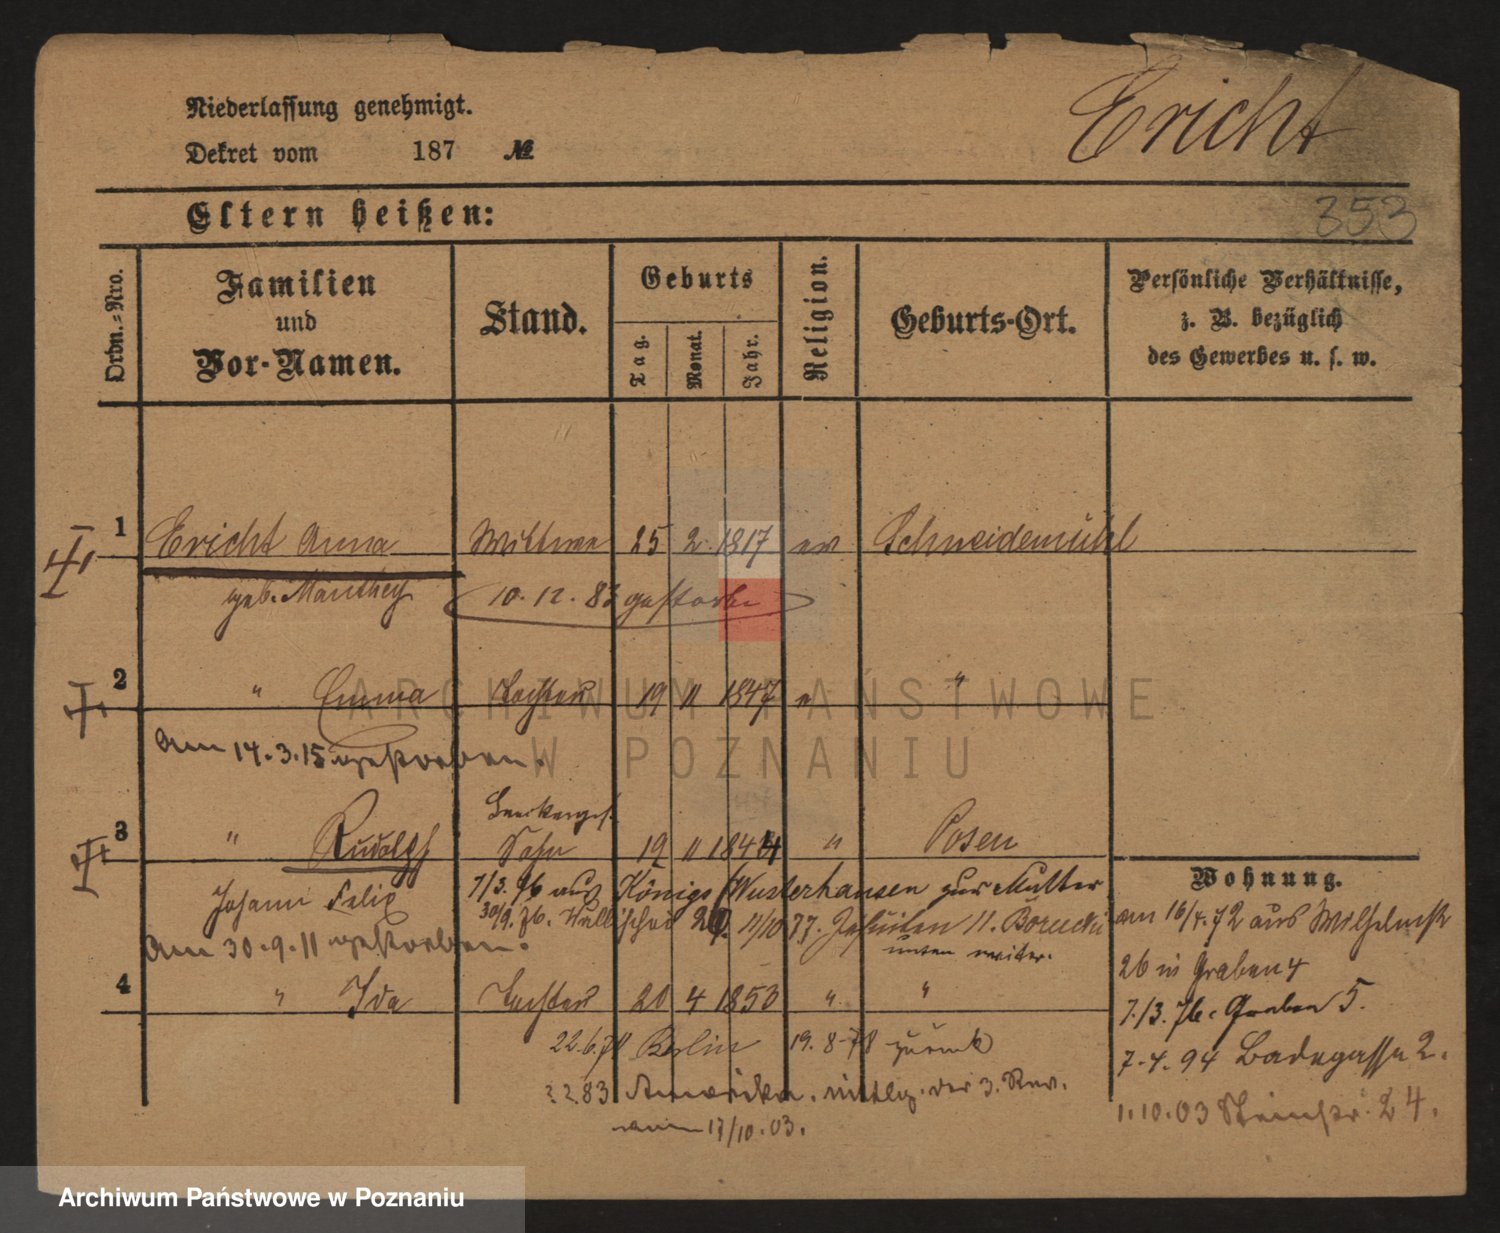 Niederlassung genehmigt.
Ericht
Dekret vom 187 №
Eltern heißen:
353
Ordn.-Nro.
Familien und Vor-Namen.
Stand.
Geburts
Tag.
Monat.
Jahr.
Religion.
Geburts-Ort.
Persönliche Verhältnisse,
z. B. bezüglich
des Gewerbes u. s. w.
1 Ericht Anna Wittwe 25 2 1817 ev Schneidemühl
geb. Manthey 10. 12. 83 gestorben
2 " Emma Tochter 19 11 1847 e "
ARCHIWUM PAŃSTWOWE
W POZNANIU
am 14. 3. 15 gestorben.
3 " Rudolph Sohn 19 11 1844 " Posen
Johann Felix 7/3. 76 aus Königs Wusterhausen zur Mutter
30/9. 76. Wallischei 11/10 77. Jesuiten 11.
am 30. 9. 11 gestorben.
unten weiter.
4 " Ida Tochter 20 4 1853 " "
22. 6. 78 Berlin 19. 8. 78 zurück
2 2 83 Amerika. der 3. Rev.
vom 17/10. 03.
Wohnung.
am 16/4. 72 aus Wilhelmstr
26 in Graben 4
7./3. 76. Graben 5.
7. 4. 94 Badegasse 2.
1. 10. 03 24.
Archiwum Państwowe w Poznaniu